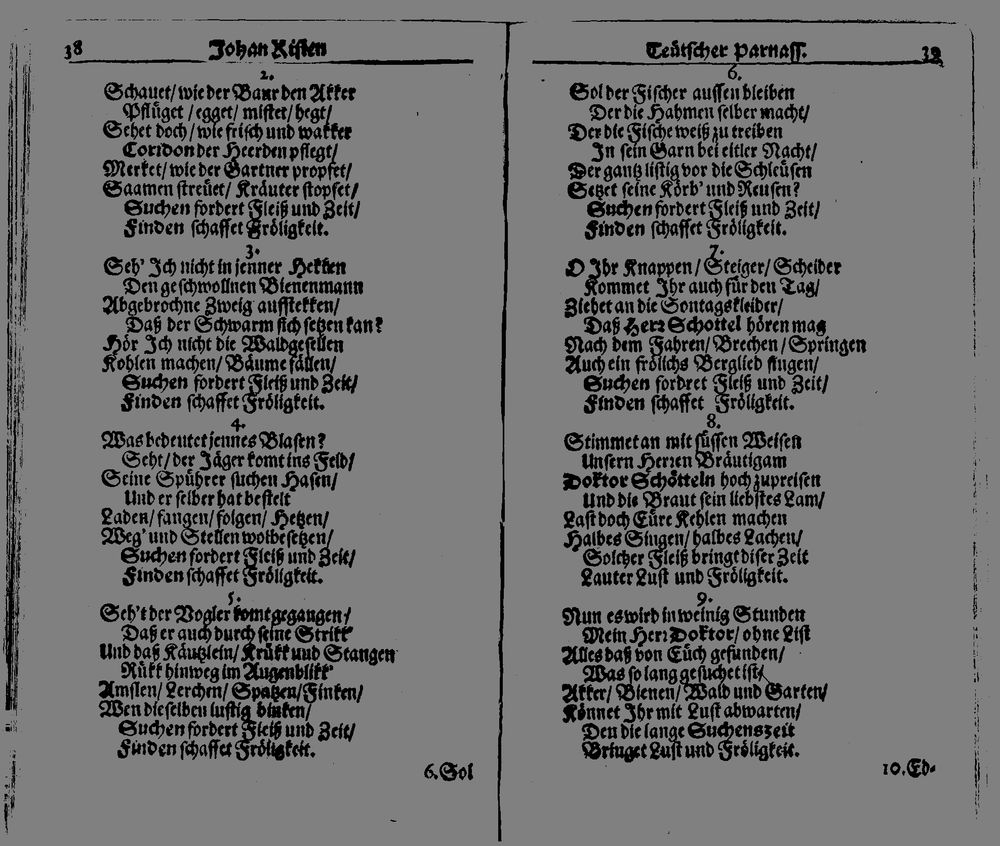 38 Johan Risten
2.
Schauet/ wie der Baur den Akker
Pflüget / egget/ mistet/ hegt/
Sehet doch/ wie frisch und wakker
Coridon der Heerden pflegt/
Merket/ wie der Gärtner propfet/
Saamen streüet/ Kräuter stopfet/
Suchen fordert Fleiß und Zeit/
Finden schaffet Fröligkeit.
3.
Seh' Ich nicht in jenner Hekken
Den geschwollnen Bienenmann
Abgebrochne Zweig aufstekken/
Daß der Schwarm sich setzen kan?
Hör Ich nicht die Waldgesellen
Kohlen machen/ Bäume fällen/
Suchen fordert Fleiß und Zeit/
Finden schaffet Fröligkeit.
4.
Was bedeutet jennes Blasen?
Seht/ der Jäger komt ins Feld/
Seine Spührer suchen Hasen/
Und er selber hat bestelt
Laden/ fangen/ folgen/ Hetzen/
Weg' und Stellen wolbesetzen/
Suchen fordert Fleiß und Zeit/
Finden schaffet Fröligkeit.
5.
Seh't der Vogler komt gegangen/
Daß er auch durch seine Strikk'
Und daß Käutzlein/ Krükk und Stangen
Rükk hinweg im Augenblikk
Amslen/ Lerchen/ Spatzen/ Finken/
Wen dieselben lustig hinken/
Suchen fordert Fleiß und Zeit/
Finden schaffet Fröligkeit.
6. Sol
Teütscher Parnass. 39
6.
Sol der Fischer aussen bleiben
Der die Hahmen selber macht/
Der die Fische weiß zu treiben
In sein Garn bei eitler Nacht/
Der gantz listig vor die Schleüsen
Setzet seine Körb' und Reusen?
Suchen fordert Fleiß und Zeit/
Finden schaffet Fröligkeit.
7.
O Ihr Knappen/ Steiger/ Scheider
Kommet Ihr auch für den Tag/
Ziehet an die Sontagskleider/
Daß Herr Schottel hören mag
Nach dem Fahren/ Brechen/ Springen
Auch ein frölichs Berglied singen/
Suchen fordret Fleiß und Zeit/
Finden schaffet Fröligkeit.
8.
Stimmet an mit süssen Weisen
Unsern Herren Bräutigam
Doktor Schötteln hoch zu preisen
Und die Braut sein liebstes Lam/
Last doch Eüre Kehlen machen
Halbes Singen/ halbes Lachen/
Solcher Fleiß bringt diser Zeit
Lauter Lust und Fröligkeit.
9.
Nun es wird in weinig Stunden
Mein Herr Doktor/ ohne List
Alles daß von Eüch gefunden/
Was so lang gesuchet ist/
Akker/ Bienen/ Wald und Garten/
Könnet Ihr mit Lust abwarten/
Den die lange Suchenszeit
Bringet Lust und Fröligkeit.
10. Ed-